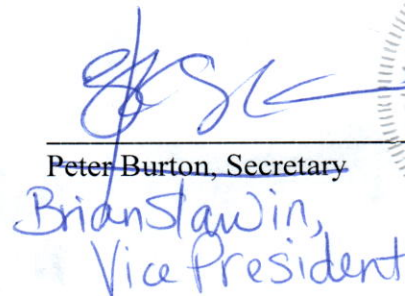 Peter Burton, Secretary
Brian Slawin,
Vice President